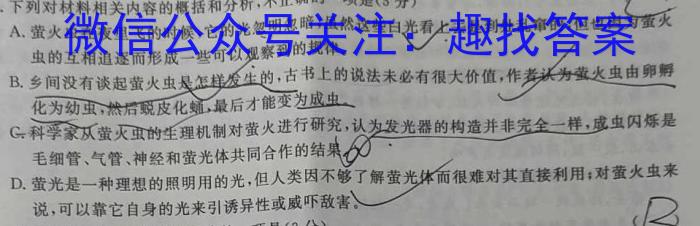 下列对材料相关内容的概括和分析,不正确的一项是(3分)
A. 萤火虫在夜里飞的时候,它的光忽明忽暗,虽然这星白光看上去
微信公众号关注:趣找答案
虫的互相追逐而形成一些可以观察到的规律
B. 乡间没有谈起萤火虫是怎样发生的,古书上的说法未必有很大价值,作者认为萤火虫由卵孵
化为幼虫,然后脱皮化蛹,最后才能变为成虫。
C. 科学家从萤火虫的生理机制对萤火进行研究,认为发光器的构造并非完全一样,成虫闪烁是
毛细管、气管、神经和萤光体共同合作的结果。
D. 萤光是一种理想的照明用的光,但人类因不够了解萤光体而很难对其直接利用;对萤火虫来
说,可以靠它自身的光来引诱异性或威吓敌害。
(B